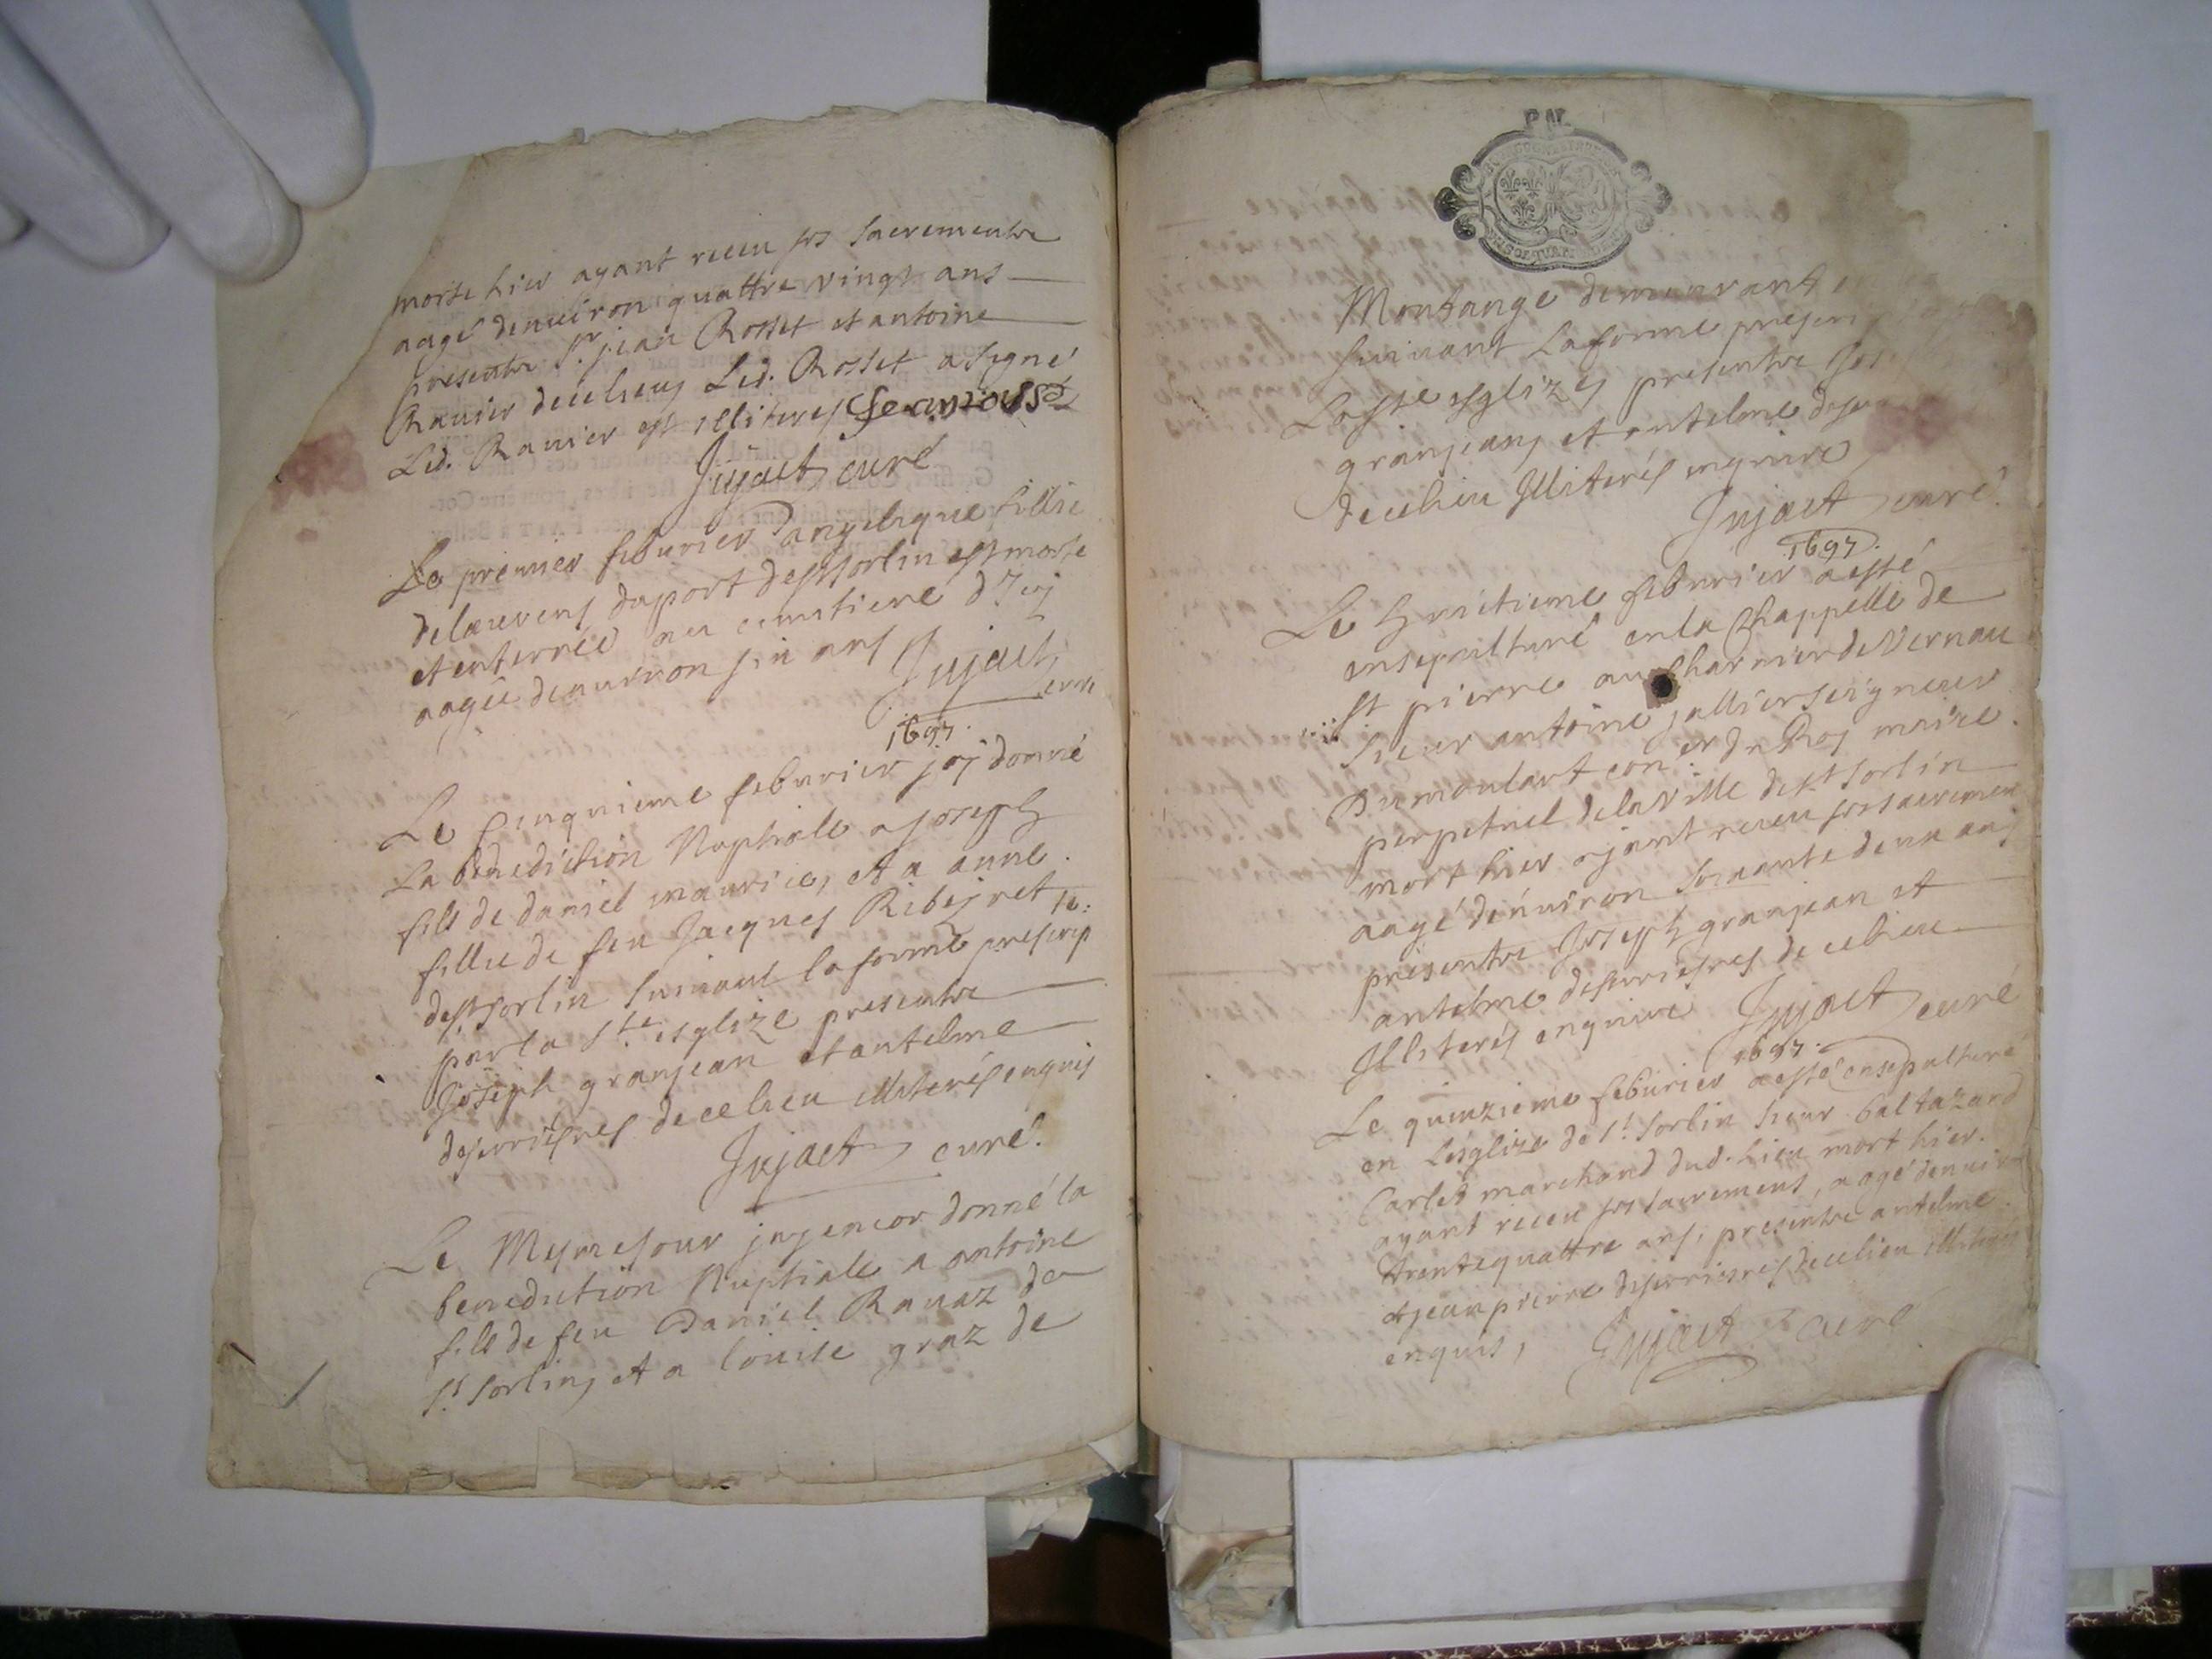 morte hier ayant receu ses sacrementz
aagé denuiron quattre vingt ans
presentz Sr. jean Rosset et antoine
Rauier decelieuz Led. Rosset a signé
Led. Rauier est illiteres
Jujact curé
Le premier feburier dangelique fillie
delaurens duport destsorlin est morte
et enterrée au cimitiere
aagée denuiron six ans Jujact
curé
1697.
Le Cinquieme feburier jay donné
La benediction Nuptiale a Joseph
fils de daniel maurier, et a anne
fillie de feu Jacques Ribeyret
destsorlin suivant la forme prescrip te:
par la Ste. esglize presentz
Joseph granjean et antelme
deserriesres de ce lieu illiterés enquis
Jujact curé.
Le Mesmejour jay encor donné la
benediction Nuptiale a antoine
fils de feu Daniel Rauaz de
St. Sorlin, et a louise graz de
P.N.
Montange demeurant
suivant Laforme prescri
Laste esglizes presentz Jos
granjeans et antelme deser
decelieu Illiterés enquire
Jujact curé.
1697.
Le huictieme feburier a esté
ensepulturé en la Chappelle de
St pierre au Charnier de Vernau
sieur antoine jallier seigneur
Dumontart coner. du Roy maire
perpetuel dela Ville de st sorlin
mort hier ajant receu ses sacremen
aagé denuiron soixante deux ans
presentz Joseph granjean et
antelme deserriesres de ce lieu
Illiterés enquire Jujact curé
1697.
Le quinzieme feburier a esté ensepulturé
en Lesglize de St. sorlin sieur baltazard
Carlet marchand dud. Lieu mort hier.
ayant receu ses sacremens, aagé denuiron
trente quattre ans, presentz antelme
et jean pierre deserriesres decelieu illiterés
enquis, Jujact curé